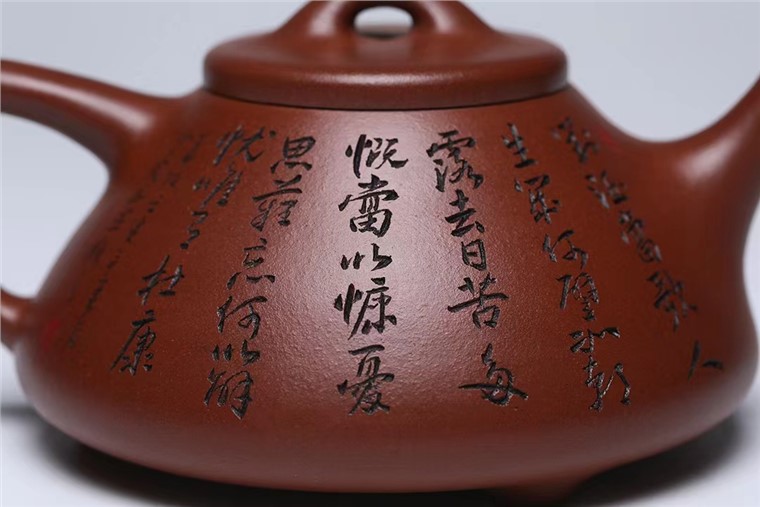 對酒當歌人
生幾何譬如朝
露去日苦多
慨當以慷憂
思難忘何以解
忧惟有杜康